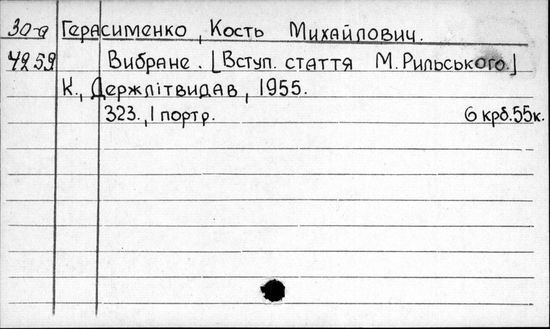 30-а Герасименко, Кость Михайлович.
4259 Вибране. [Вступ. стаття М. Рильського.]
К., Держлітвидав, 1955.
323., 1 портр. 6 крб. 55к.